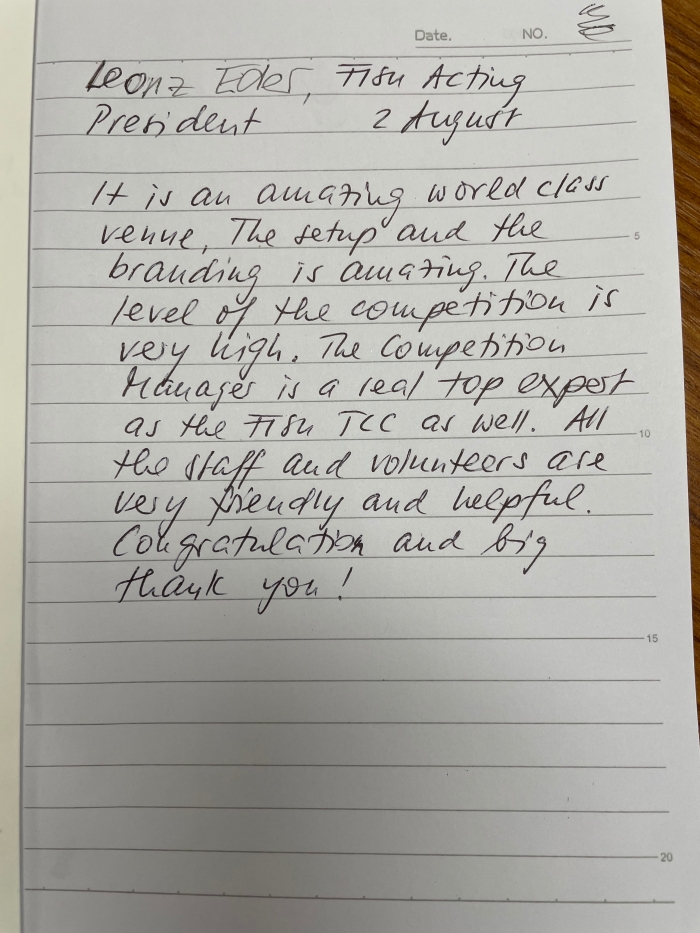 Date. NO.
Leonz Eder, FISU Acting
President 2 August
It is an amazing world class
venue, The setup and the
branding is amazing. The
level of the competition is
very high. The Competition
Manager is a real top expert
as the FISU TCC as well. All
the staff and volunteers are
very friendly and helpful.
Congratulation and big
thank you!
5
10
15
20